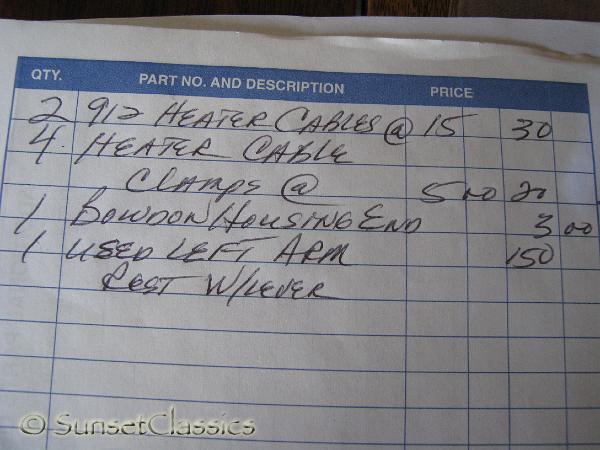 QTY. PART NO. AND DESCRIPTION PRICE
2 912 HEATER CABLES @ 15 30
4. HEATER CABLE
CLAMPS @ 5 00 20
1 BOWDON HOUSING END 3 00
1 USED LEFT ARM 150
REST W/LEVER
© SunsetClassics